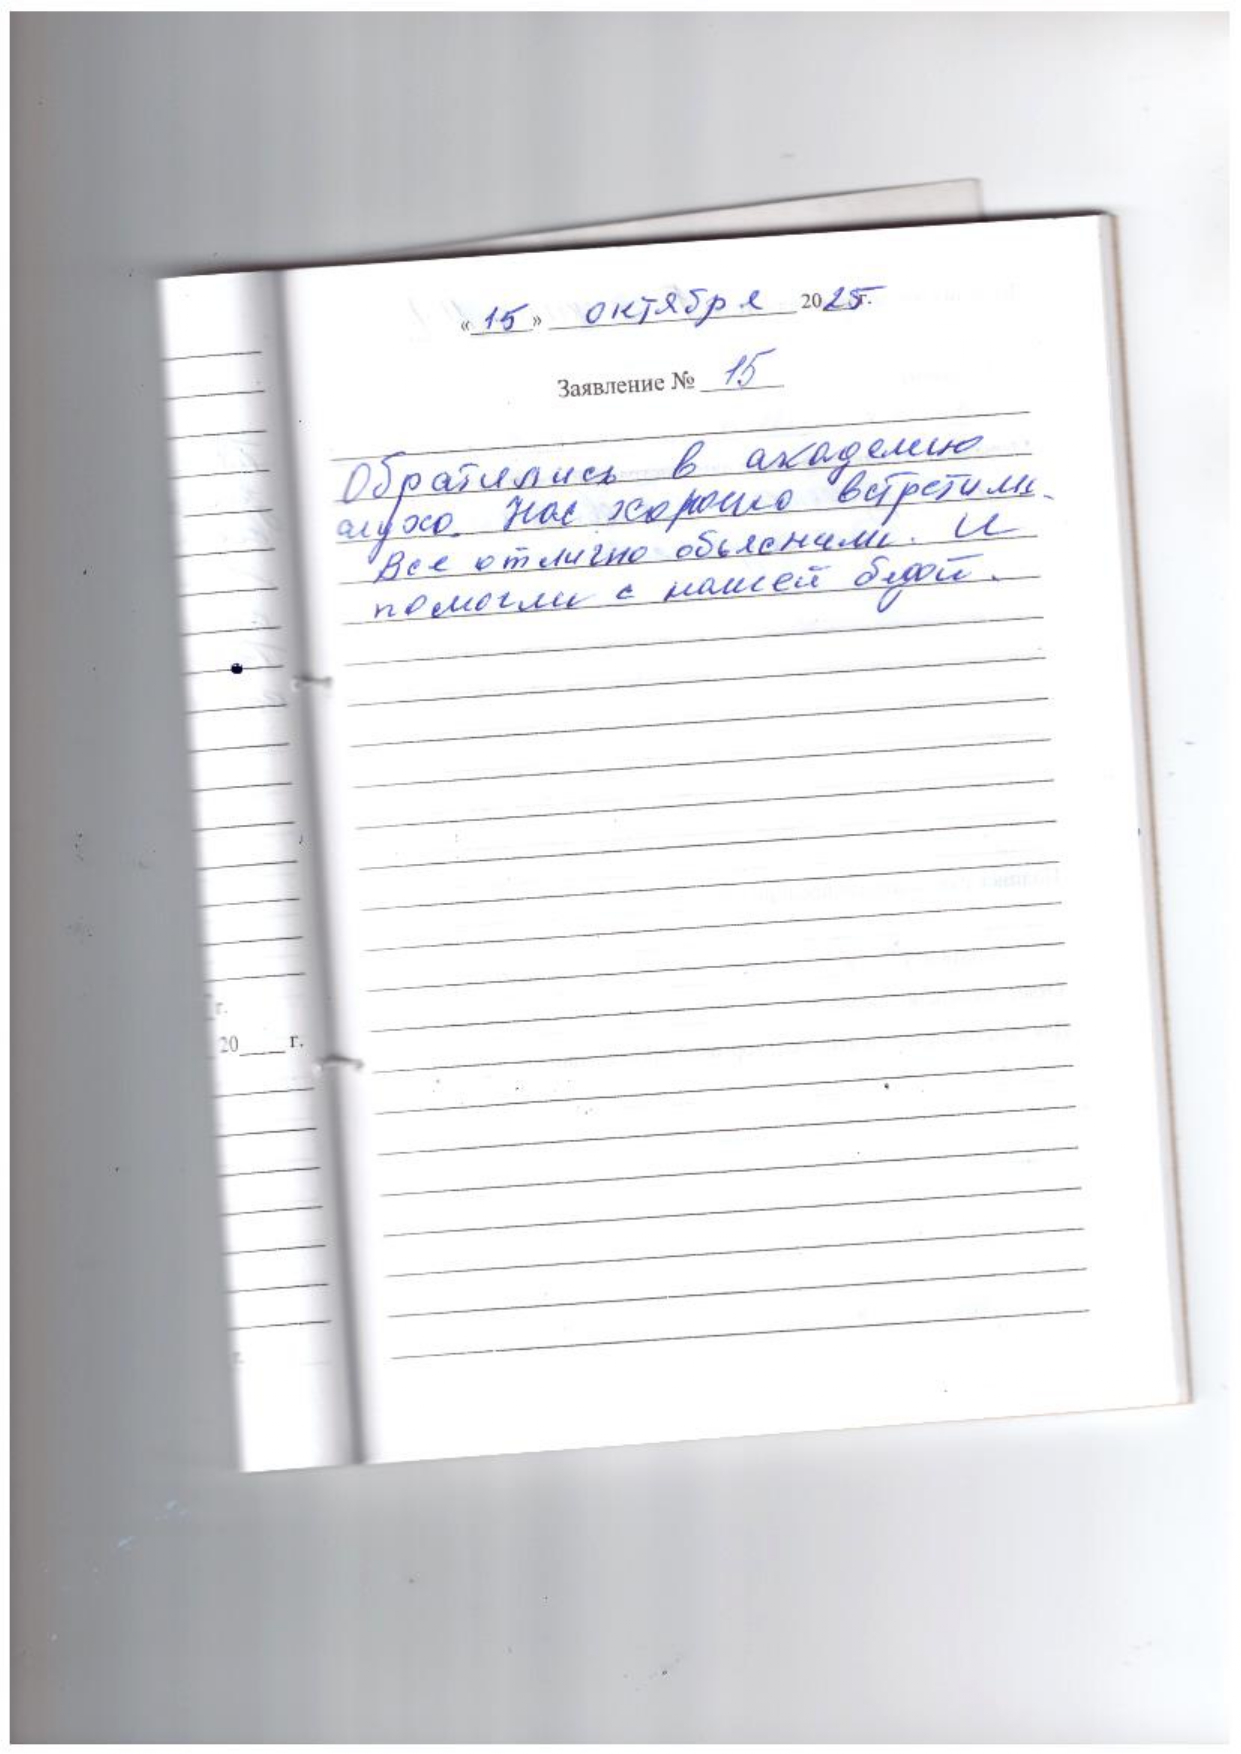 «15» октября 2025г.
Заявление № 15
Обратились в академию
слуха. Нас хорошо встретили.
Все отлично объяснили. И
помогли с нашей бедой.
г.
20____ г.